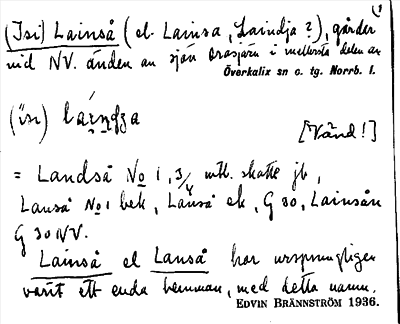 (1
(Isi) Lainså (el. Lainsa, Laindja?), gårder
vid NV. änden av sjön Orasjärv i mellersta delen av
Överkalix sn o. tg. Norrb. l.
( isi)
[Vänd!]
= Landså No 1, 3/4 mtl. skatte jb,
Lanså No 1 bek, Lanså ek, G 30, Lainsån
G 30 NV.
Lainså el Lanså har ursprungligen
varit ett enda hemman, med detta namn.
EDVIN BRÄNNSTRÖM 1936.